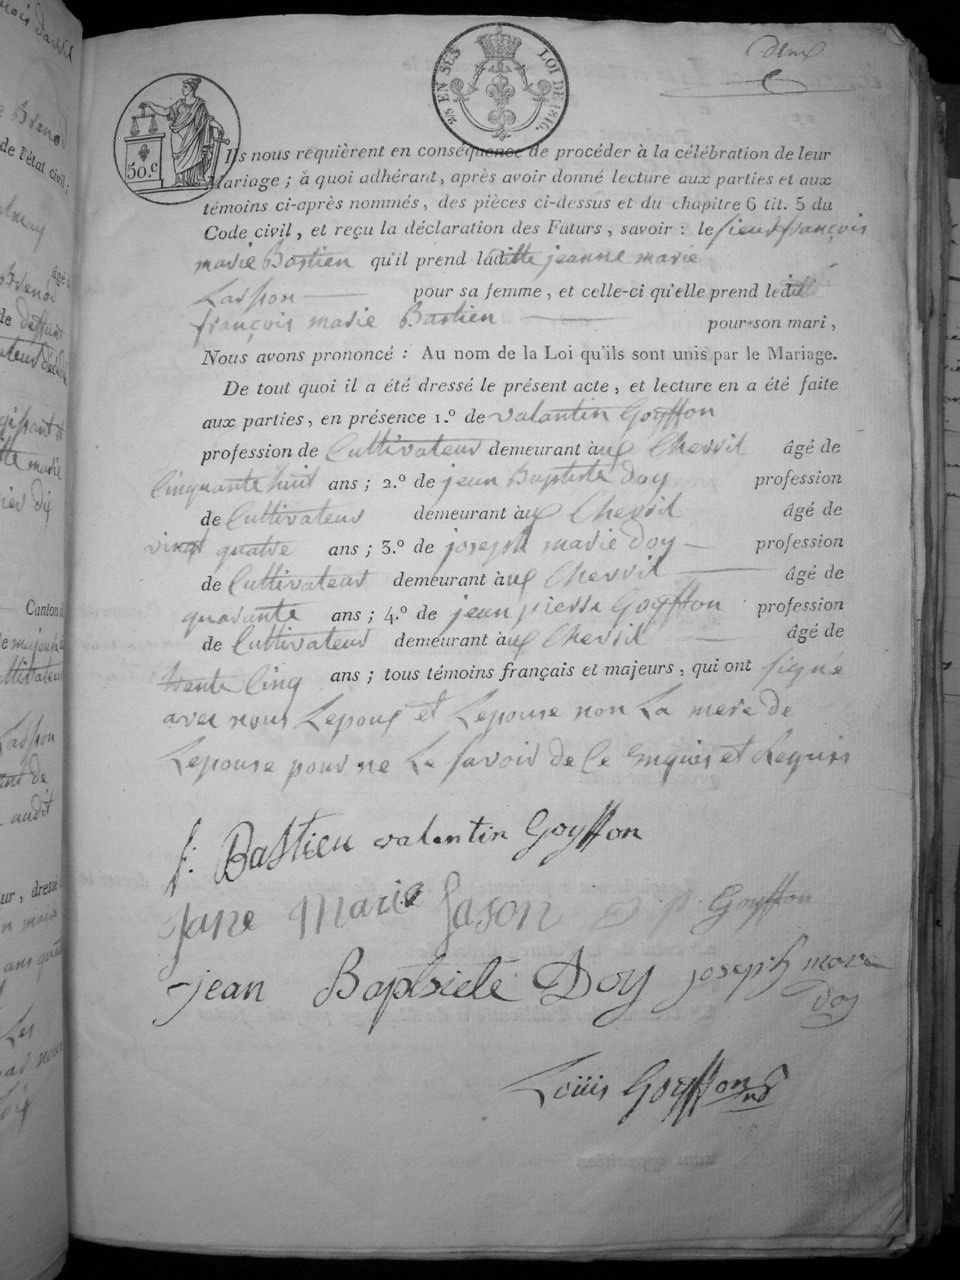 deux
2/5 EN SUS LOI DE 1816.
50.c
Ils nous requièrent en conséquence de procéder à la célébration de leur
Mariage ; à quoi adhérant, après avoir donné lecture aux parties et aux
témoins ci-après nommés, des pièces ci-dessus et du chapitre 6 tit. 5 du
Code civil, et reçu la déclaration des Futurs, savoir : le sieur françois
marie Bastien qu'il prend laditte jeanne marie
Lasson pour sa femme, et celle-ci qu'elle prend ledit
françois marie Bastien pour son mari,
Nous avons prononcé : Au nom de la Loi qu'ils sont unis par le Mariage.
De tout quoi il a été dressé le présent acte, et lecture en a été faite
aux parties, en présence 1.º de valantin Goyffon
profession de Cultivateur demeurant aux Chevril âgé de
Cinquante huit ans ; 2.º de jean Baptiste Doy profession
de Cultivateur demeurant aux Chevril âgé de
vingt quatre ans ; 3.º de joseph marie Doy profession
de Cultivateur demeurant aux Chevril âgé de
quarante ans ; 4.º de jean pierre Goyffon profession
de Cultivateur demeurant aux Chevril âgé de
trente Cinq ans ; tous témoins français et majeurs, qui ont signé
avec nous Lepoux et Lepouse non La mere de
Lepouse pour ne Le savoir de Ce Enquis et Requis
f. Bastien valentin Goyffon
Jane Marie Jason p. Goyffon
jean Baptiste Doy joseph marie
Doy
Loüis Goyffon